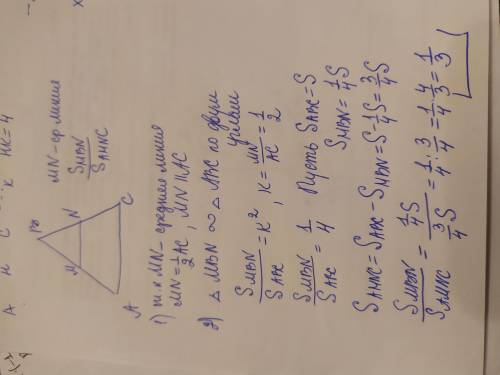 A н C ... к НК=4
B
M N
A C
MN-ср линия
S_MBN / S_AMNC
1) т.к MN-средняя линия
MN=1/2AC, MN||AC
2) △ MBN ∞ △ ABC по двум
углам
S_MBN / S_ABC = K², K = MN/AC = 1/2
S_MBN / S_ABC = 1/4 Пусть S_ABC=S
S_MBN=1/4S
S_AMNC=S_ABC-S_MBN=S-1/4S=3/4S
S_MBN / S_AMNC = 1/4S / 3/4S = 1/4 : 3/4 = 1/4 · 4/3 = 1/3